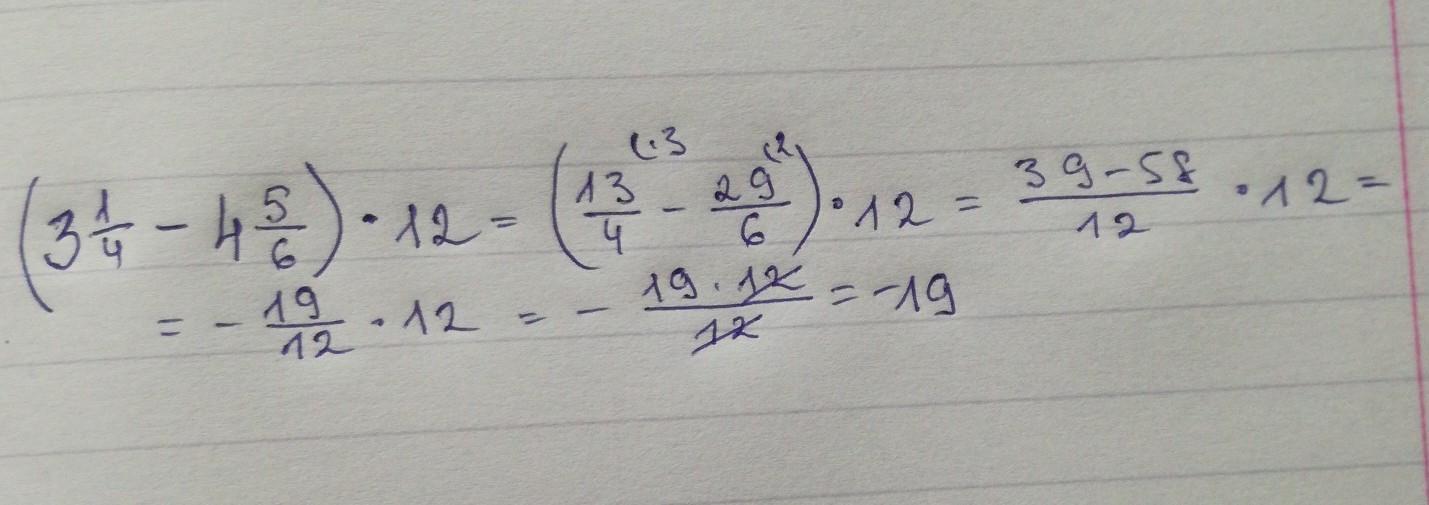 (3 1/4 − 4 5/6) · 12 = (13/4 (·3 − 29/6 (·2) · 12 = 39−58/12 · 12 =
= − 19/12 · 12 = − 19·12/12 = −19